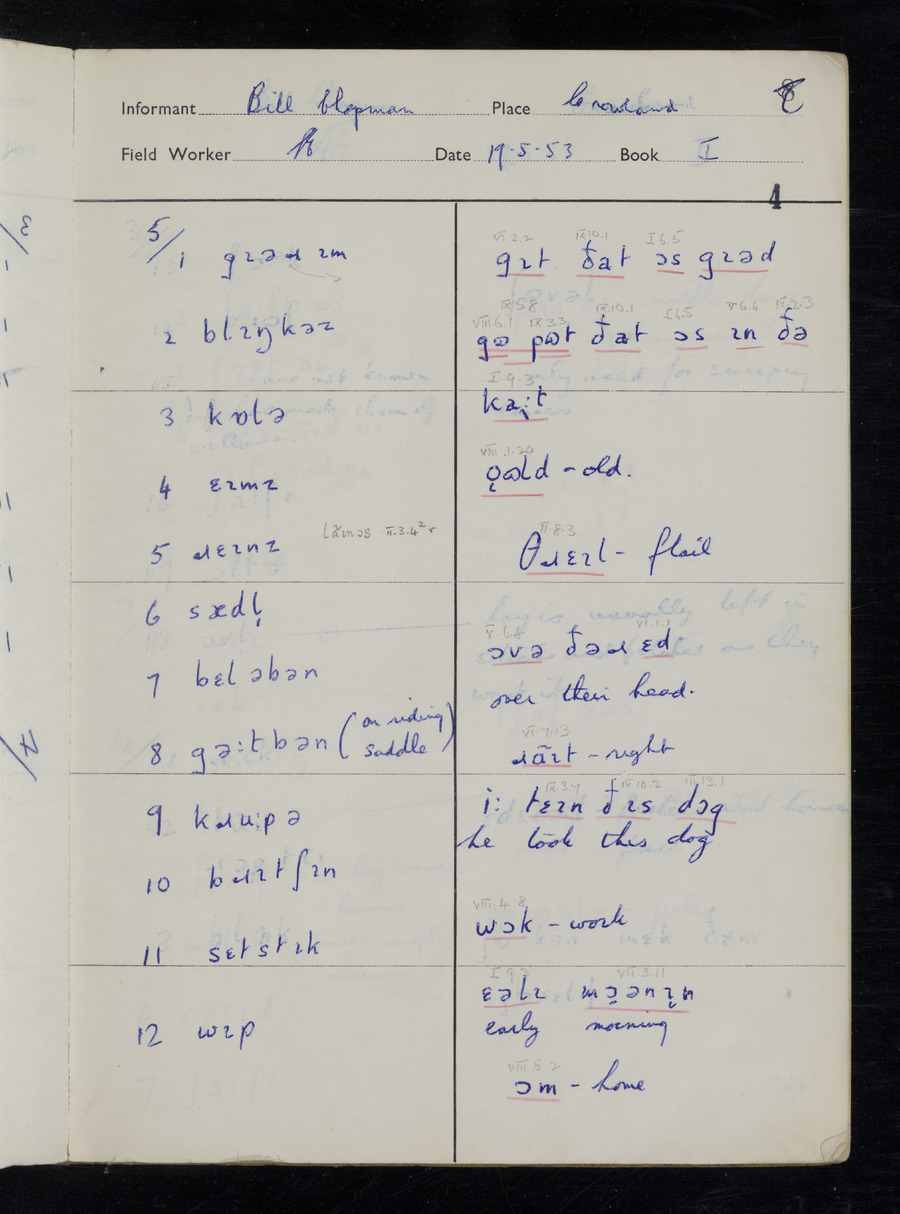 Informant Bill Place Crowland
Field Worker Date 19·5·53 Book I
4
5/
VI.2.2 IX.10.1 I.6.5
1 gɪəɹ ɪm
gɪt ðat ɔs gɪəd
IX.5.8 IX.10.1 I.6.5 V.6.6 IX.2.3
VIII.6.1 IX.3.3
2 blɪŋkəz
gɷ pɷt ðat ɔs ɪn ðə
I.9.3
3 kɒlə
ka̢:t
VIII.1.20
4 ɛɪmz
ǫɷld – old.
II.8.3
5 ɹɛɪnz lãɪnəs II.3.4
θɹɛɪl – flail
6 sædl̩
V.6.8 VI.1.1
ɔvə ðəɹ ɛd
7 bɛləbən
over their head.
8 gə:tbən (on riding saddle)
VI.7.13
ɹãɪt – right
IX.3.7 IX.10.2 III.13.1
9 kɹu:pə
i: tɛɪn ðɪs dɔg
he took this dog
10 bɹɪtʃɪn
VIII.4.8
wɔk – work
11 sɛtstɪk
I.9.3 VII.3.11
12 wɪp
ɛəlɪ mɔ̢ənɪn
early morning
VIII.5.2
ɔm – home